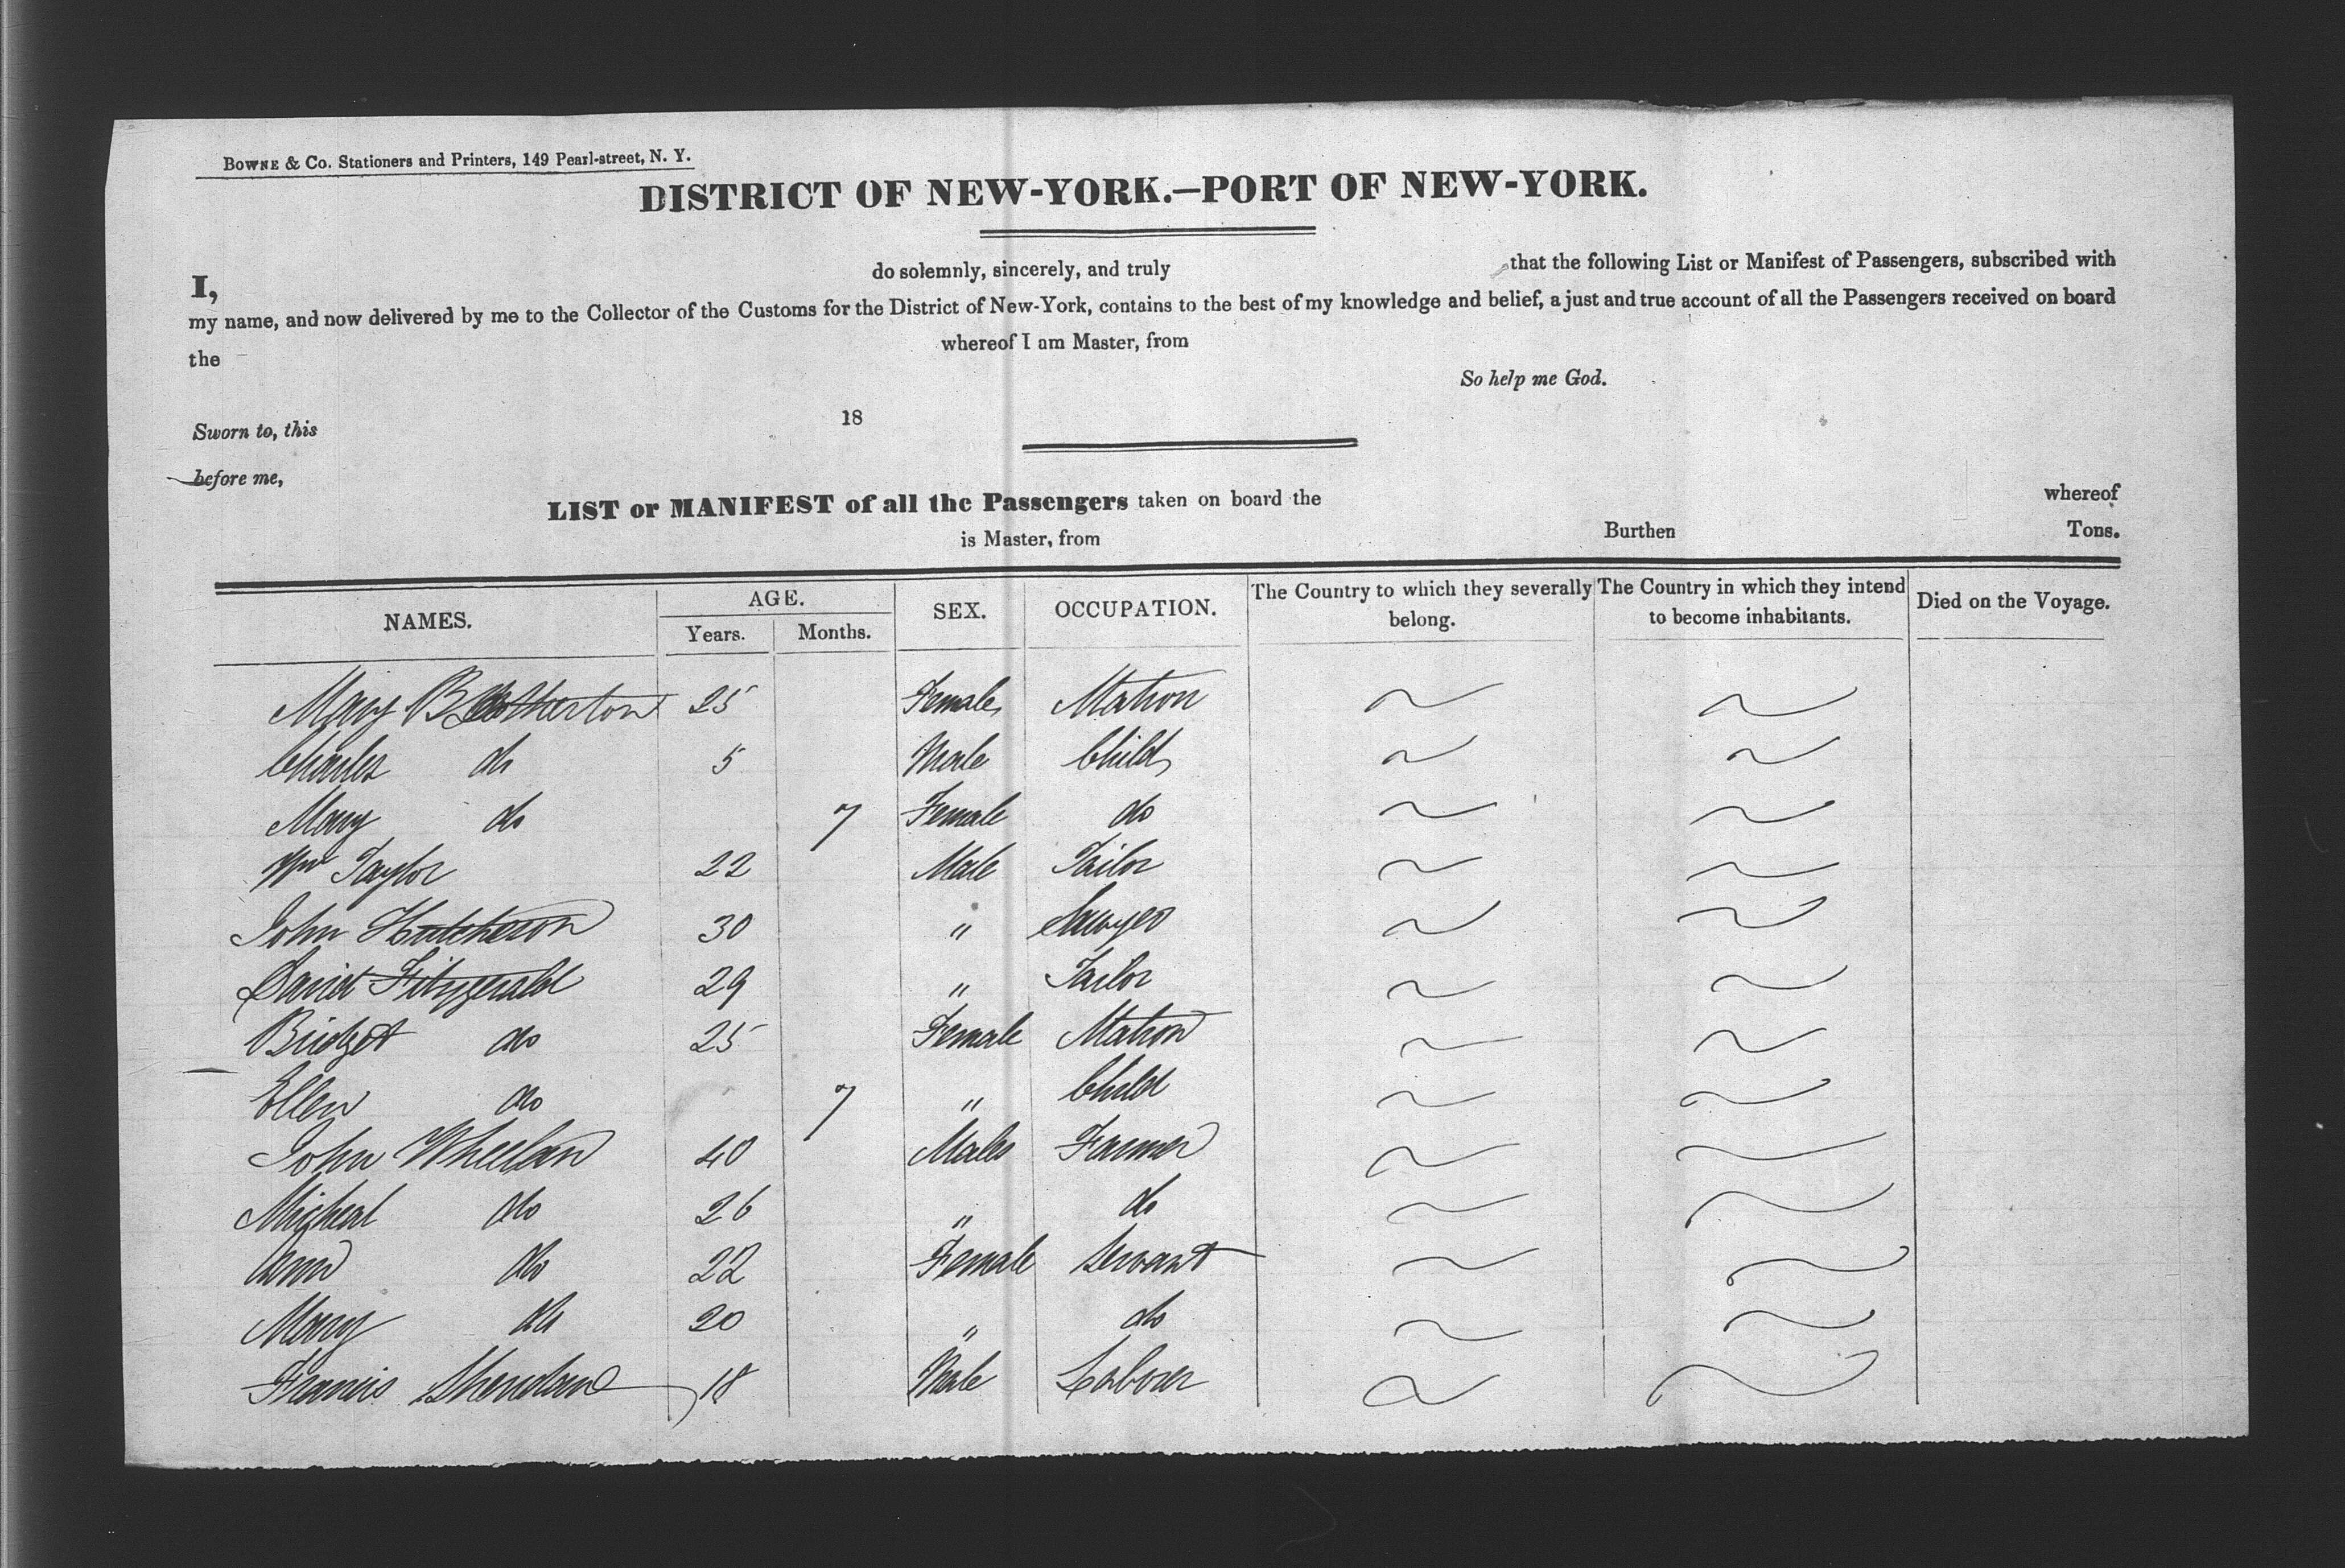 BOWNE & Co. Stationers and Printers, 149 Pearl-street, N. Y.
DISTRICT OF NEW-YORK.—PORT OF NEW-YORK.
I, do solemnly, sincerely, and truly that the following List or Manifest of Passengers, subscribed with
my name, and now delivered by me to the Collector of the Customs for the District of New-York, contains to the best of my knowledge and belief, a just and true account of all the Passengers received on board
the whereof I am Master, from
So help me God.
Sworn to, this 18
before me,
LIST or MANIFEST of all the Passengers taken on board the whereof
is Master, from Burthen Tons.
NAMES. AGE. Years. Months. SEX. OCCUPATION. The Country to which they severally belong. The Country in which they intend to become inhabitants. Died on the Voyage.
Mary 25 Female Matron ~ ~
Charles do 5 Male Child ~ ~
Mary do 7 Female do ~ ~
Wm Taylor 22 Male Tailor ~ ~
John Hutcheson 30 " Sawyer ~ ~
David Fitzgerald 29 " Tailor ~ ~
Bridget do 25 Female Matron ~ ~
Ellen do 7 " Child ~ ~
John Wheelan 40 Male Farmer ~ ~
Micheal do 26 " do ~ ~
Ann do 22 Female Servant ~ ~
Mary do 20 " do ~ ~
Francis Sheridan 18 Male Laborer ~ ~